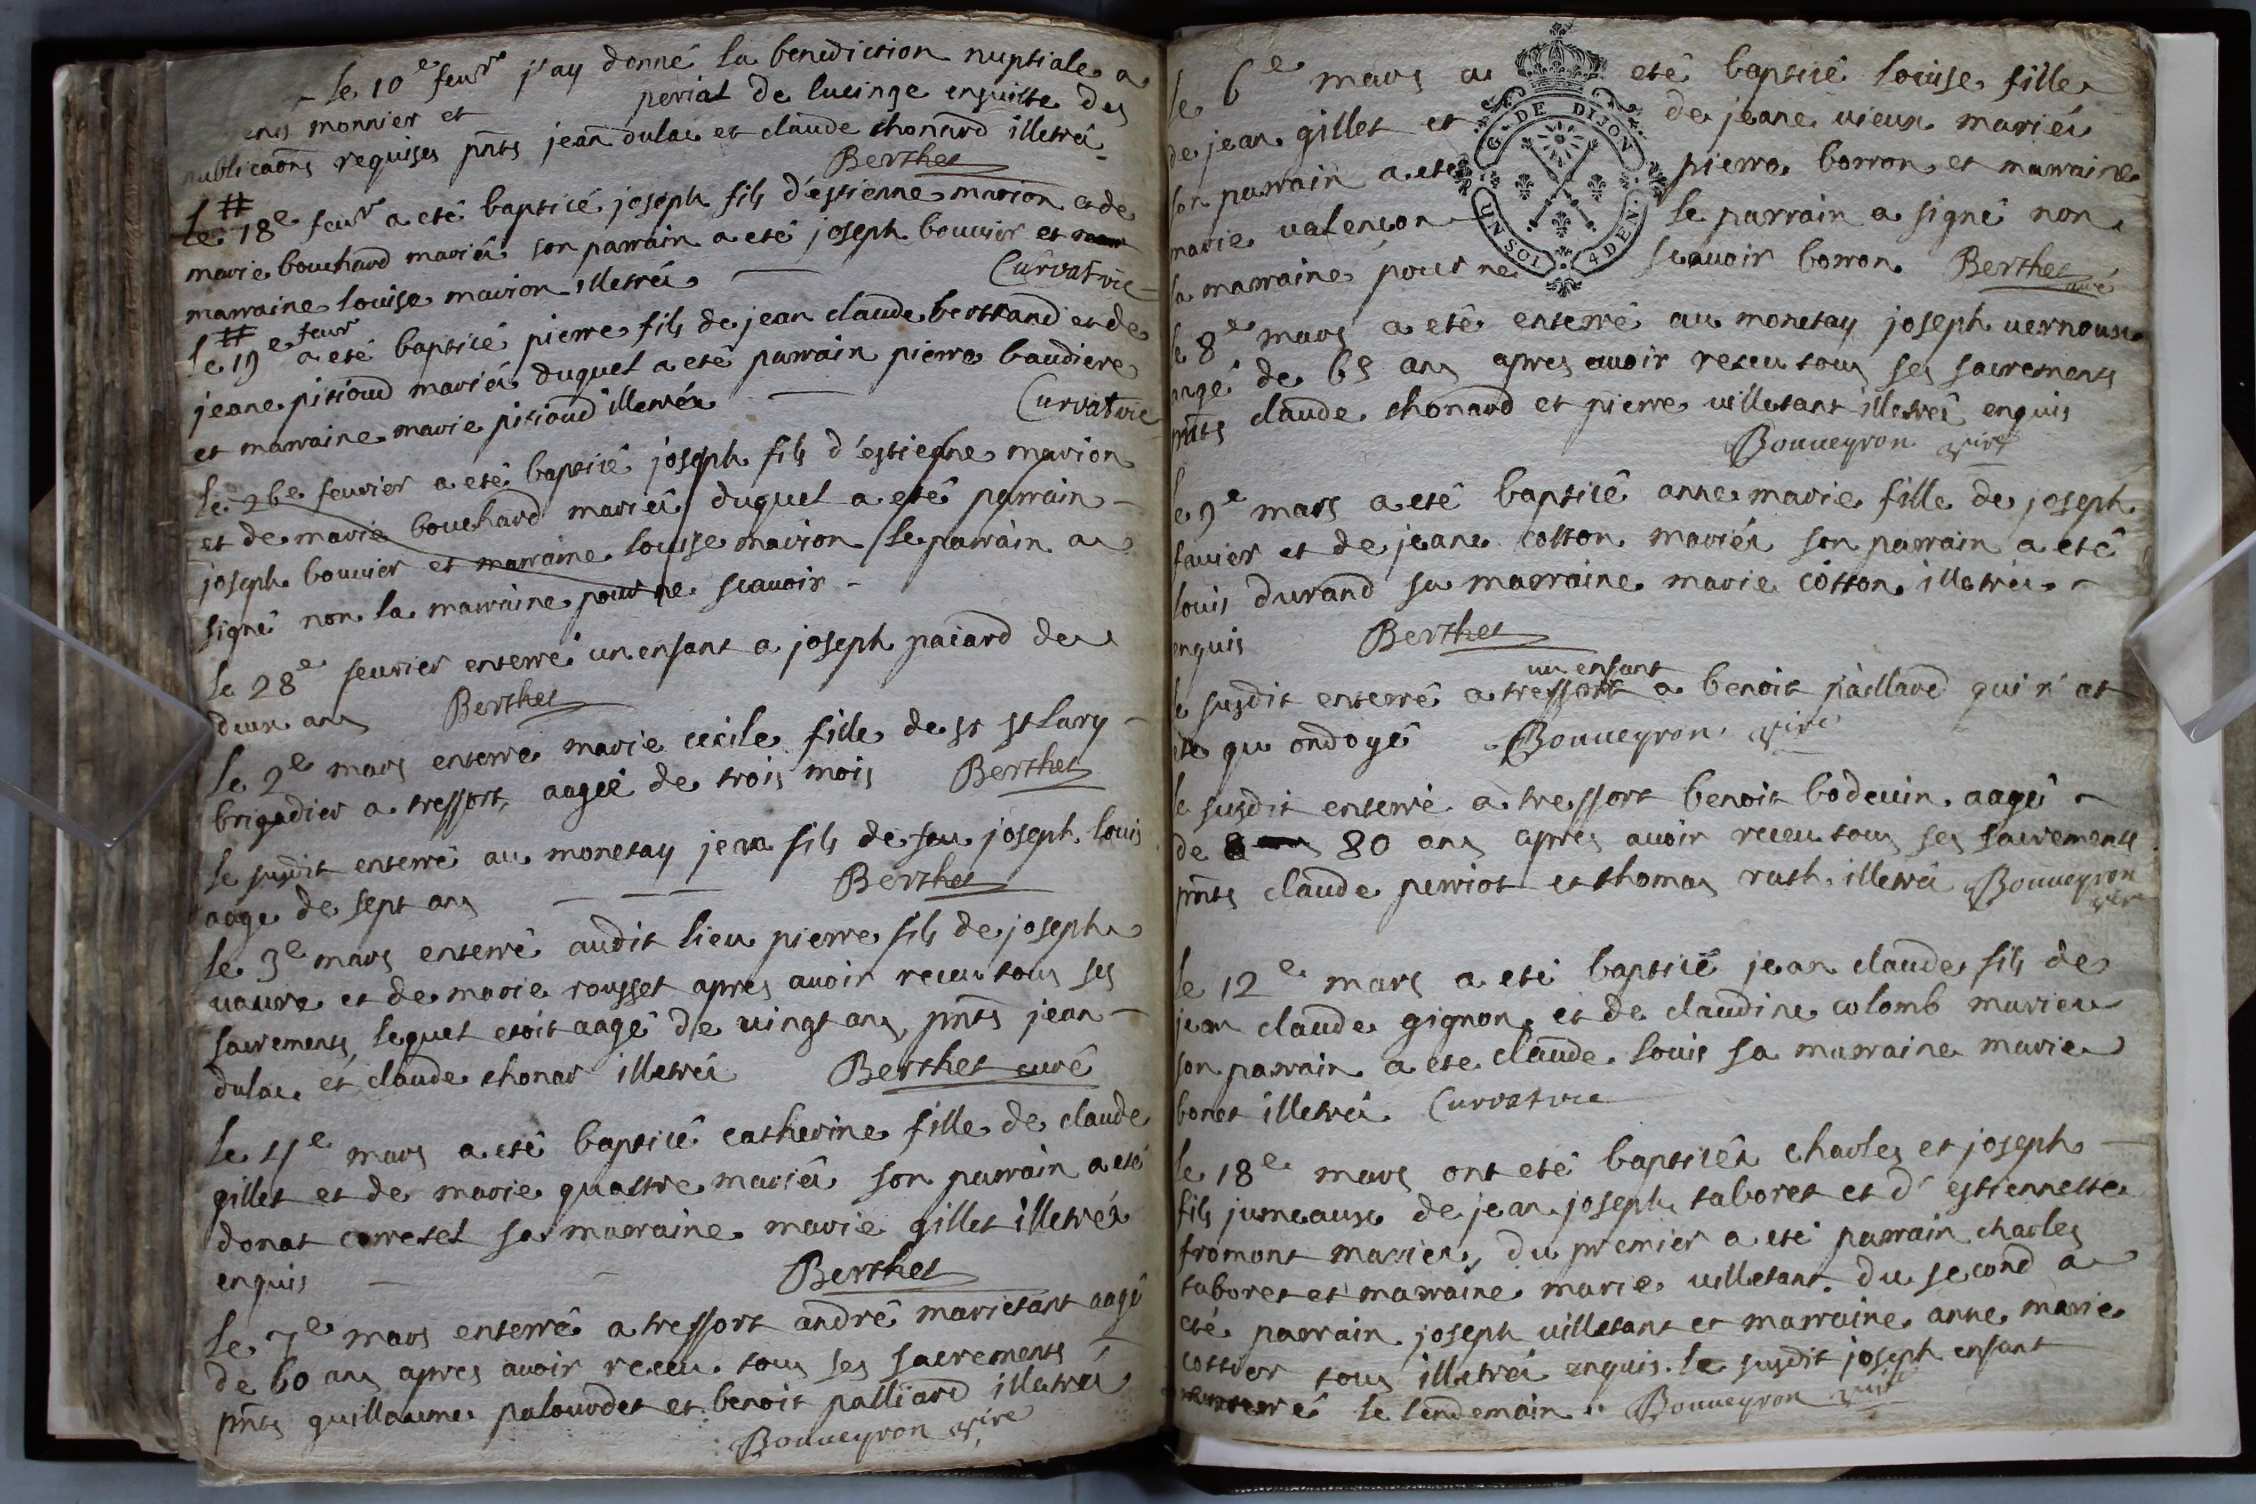 le 10e feuvr j'ay donné la benediction nuptiale a
monnier et periat de lucinge ensuitte des
publicaons requises pnts jean dulac et claude chonard illetrés
Berthet
le 18e feuvr a eté baptisé joseph fils d'estienne marion et de
marie bouchard mariés son parrain a eté joseph bouvier et
marraine louise marion illetrés Curvat vic
le 19e feuvr a eté baptisé pierre fils de jean claude bertrand et de
jeane pitioud mariés duquel a eté parrain pierre baudiere
et marraine marie pitioud illetrés Curvat vic
le 26e feuvrier a eté baptisé joseph fils d'estienne marion
et de marie bouchard mariés duquel a eté parrain
joseph bouvier et marraine louise marion le parrain a
signé non la marraine pour ne scavoir
le 28e feuvrier enterré un enfant a joseph paiard de
deux ans Berthet
le 2e mars enterré marie cecile fille de sr st lary
brigadier a treffort, aagée de trois mois Berthet
le susdit enterré au monetay jean fils de feu joseph louis
aagé de sept ans Berthet
le 3e mars enterré audit lieu pierre fils de joseph
vavre et de marie rousset apres avoir receu tous ses
sacrements, lequel etoit aagé de vingt ans, pnts jean
dulac et claude chonar illetrés Berthet curé
le 4e mars a eté baptisé catherine fille de claude
gillet et de marie quattre mariés son parrain a eté
donat corretel sa marraine marie gillet illetrés
enquis Berthet
le 7e mars enterré a treffort andré marietant aagé
de 60 ans apres avoir receu tous ses sacrements
pnts guillaume palourdet et benoit palliard illetrés
Bouveyron vire
le 6e mars a eté baptisé louise fille
de jean gillet et de jeane vieux mariés
son parrain a eté pierre borron et marraine
marie valençon le parrain a signé non
la marraine pour ne scavoir borron Berthet curé
G. DE DIJON
UN SOL 4 DEN.
le 8e mars a eté enterré au monetay joseph vernoux
aagé de 65 ans apres avoir receu tous ses sacrements
pnts claude chonard et pierre villetant illetrés enquis
Bouveyron vire
le 9e mars a eté baptisé anne marie fille de joseph
favier et de jeane cotton mariés son parrain a eté
louis durand sa marraine marie cotton illetrés
enquis Berthet
un enfant
le susdit enterré a treffort a benoit paillard qui n'at
eté qu ondoyé Bouveyron vire
le susdit enterré a treffort benoit bodevin aagé
de 80 ans apres avoir receu tous ses sacrements
pnts claude perriot et thomas ruth illetrés Bouveyron
vire
le 12e mars a eté baptisé jean claude fils de
jean claude gignon et de claudine colomb mariés
son parrain a eté claude louis sa marraine marie
bonet illetrés Curvat vic
le 18e mars ont eté baptisés charles et joseph
fils jumeaux de jean joseph taboret et d'estiennette
fromont mariés, du premier a eté parrain charles
taboret et marraine marie villetant. du second a
eté parrain joseph villetant et marraine anne marie
cottier tous illetrés enquis. le susdit joseph enfant
enterré le lendemain Bouveyron vire